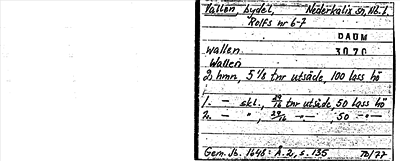 Vallen, bydel, Nederkalix sn, Nb. l.
Rolfs nr 6-7
DAUM
wallen 3070
Wallen
2 hmn, 5 1/8 tnr utsäde, 100 lass hö
1. — skl., 29/16 tnr utsäde, 50 lass hö
2. — ", 29/16 —"— , 50 —"—
Gem. Jb. 1648: A. 2, s. 135 TB/77